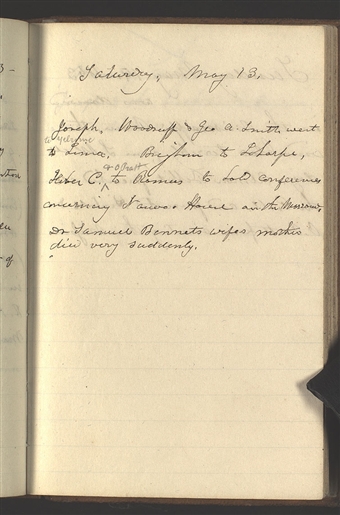 Saturday, May 13.
Joseph, Woodruff & Geo A. Smith went
Yelrome
to Lima. Brigham to Laharpe,
& O Pratt
Heber C. to Ramus to hold conferences
concerning Nauvoo House and the
Dr Samuel Bennets wifes mother
died very suddenly.